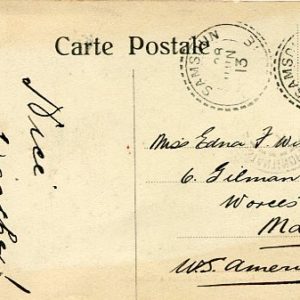 Carte Postale
SAMSOUN
28
JUIN
13
SAMSOUN
Nice
Miss Edna F. Wi
6. Gilman
Worces
Ma
U.S. Ameri